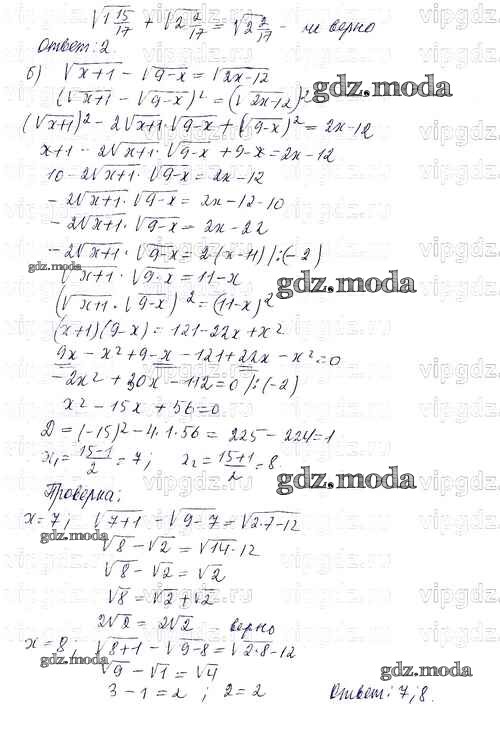 √1 15/17 + √2 2/17 = √2 2/17 - не верно
Ответ: 2.
б) √x+1 - √9-x = √2x-12
(√x+1 - √9-x)² = (√2x-12)²
(√x+1)² - 2√x+1 · √9-x + (√9-x)² = 2x-12
x+1 - 2√x+1 · √9-x + 9-x = 2x-12
10 - 2√x+1 · √9-x = 2x-12
- 2√x+1 · √9-x = 2x-12-10
- 2√x+1 · √9-x = 2x-22
- 2√x+1 · √9-x = 2(x-11) /:(-2)
√x+1 · √9-x = 11-x
(√x+1 · √9-x)² = (11-x)²
(x+1)(9-x) = 121-22x+x²
9x - x² + 9 - x - 121 + 22x - x² = 0
- 2x² + 30x - 112 = 0 /:(-2)
x² - 15x + 56 = 0
D = (-15)² - 4·1·56 = 225 - 224 = 1
x₁ = 15-1/2 = 7; x₂ = 15+1/2 = 8.
Проверка:
x = 7; √7+1 - √9-7 = √2·7-12
√8 - √2 = √14-12
√8 - √2 = √2
√8 = √2 + √2
2√2 = 2√2 верно
x = 8; √8+1 - √9-8 = √2·8-12
√9 - √1 = √4
3 - 1 = 2 ; 2 = 2 Ответ: 7; 8.
gdz.moda
gdz.moda
gdz.moda
gdz.moda
gdz.moda
gdz.moda
gdz.moda
gdz.moda